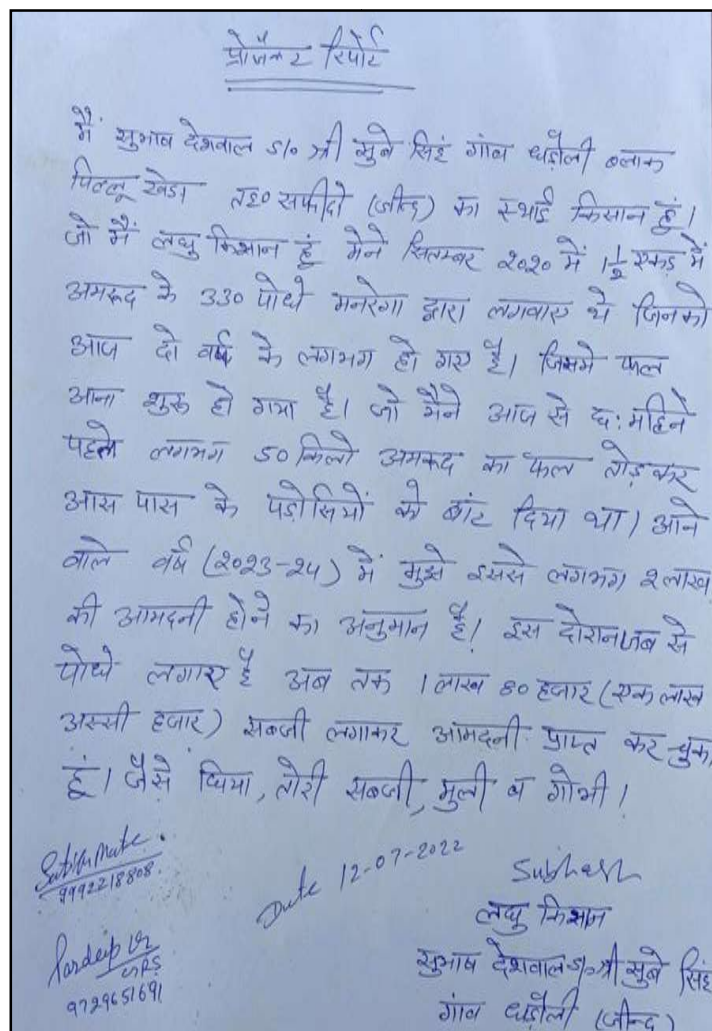 प्रोजैक्ट रिपोर्ट
मैं सुभाष देशवाल S/o श्री सुबे सिंह गांव धड़ौली ब्लाक
पिल्लू खेडा तह० सफीदो (जीन्द) का स्थाई किसान हूं।
जो मैं लघु किसान हूं मैने सितम्बर २०२० में 1½ एकड़ में
अमरूद के 330 पोधे मनरेगा द्वारा लगवाए थे जिनको
आज दो वर्ष के लगभग हो गए है। जिसमे फल
आना शुरू हो गया है। जो मैने आज से छ: महिने
पहले लगभग 50 किलो अमरूद का फल तोड़ कर
आस पास के पड़ोसियों को बांट दिया था। आने
वाले वर्ष (२०२३-२४) में मुझे इससे लगभग २ लाख
की आमदनी होने का अनुमान है। इस दोरान जब से
पोधे लगाए है अब तक 1 लाख 80 हजार (एक लाख
अस्सी हजार) सब्जी लगाकर आमदनी प्राप्त कर चुका
हूं। जैसे घिया, तोरी सब्जी, मुली व गोभी।
Mate.
9992218808
Date 12-07-2022
Subhash
लघु किसान
Pardeep
GRS
9729651691
सुभाष देशवाल S/o श्री सुबे सिंह
गांव धड़ौली (जीन्द)